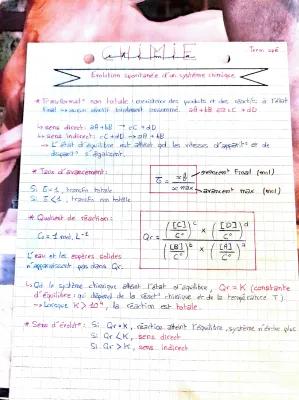 CHIMIE
Term spé
Évolution spontanée d'un système chimique
* Transformat° non totale : coexistence des produits et des réactifs à l'état
final → aucun réactif totalement consommé. aA + bB ⇌ cC + dD
↳ sens direct : aA + bB → cC + dD
↳ sens indirect : cC + dD → aA + bB
↳ L'état d'équilibre est atteint qd les vitesses d'apparit° et de
disparit° s'égalisent.
* Taux d'avancement :
Si τ = 1, transfo totale
Si τ < 1, transfo non totale
τ = xf / xmax
avancement final (mol)
avancement max (mol)
* Quotient de réaction :
C° = 1 mol.L⁻¹
Qr = ([C]/C°)^c × ([D]/C°)^d / ([B]/C°)^b × ([A]/C°)^a
L'eau et les espèces solides
n'apparaissent pas dans Qr.
↳ Qd le système chimique atteint l'état d'équilibre, Qr = K (constante
d'équilibre : qui dépend de la réact° chimique et de la température T)
→ Lorsque K > 10⁴, la réaction est totale.
* Sens d'évolut° : Si Qr = K, réaction atteint l'équilibre, système n'évolue plus
Si Qr < K, sens direct
Si Qr > K, sens indirect